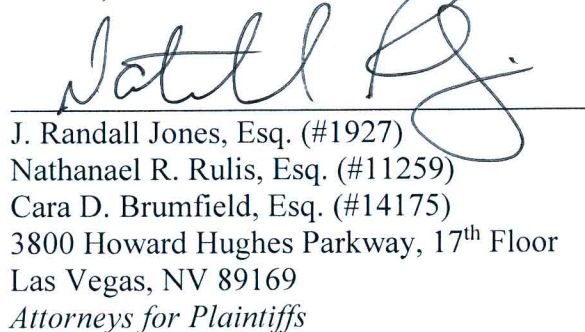 J. Randall Jones, Esq. (#1927)
Nathanael R. Rulis, Esq. (#11259)
Cara D. Brumfield, Esq. (#14175)
3800 Howard Hughes Parkway, 17th Floor
Las Vegas, NV 89169
Attorneys for Plaintiffs